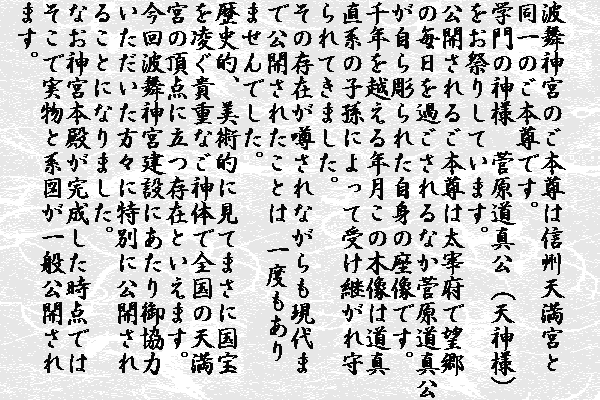 波舞神宮のご本尊は信州天満宮と
同一のご本尊です。
学門の神様　菅原道真公（天神様）
をお祭りしています。
公開されるご本尊は太宰府で望郷
の毎日を過ごされるなか菅原道真公
が自ら彫られた自身の座像です。
千年を越える年月この木像は道真
直系の子孫によって受け継がれ守
られてきました。
その存在が噂されながらも現代ま
で公開されたことは　一度もあり
ませんでした。
歴史的、美術的に見てまさに国宝
を凌ぐ貴重なご神体で全国の天満
宮の頂点に立つ存在といえます。
今回波舞神宮建設にあたり御協力
いただいた方々に特別に公開され
ることになりました。
なお神宮本殿が完成した時点では
そこで実物と系図が一般公開され
ます。